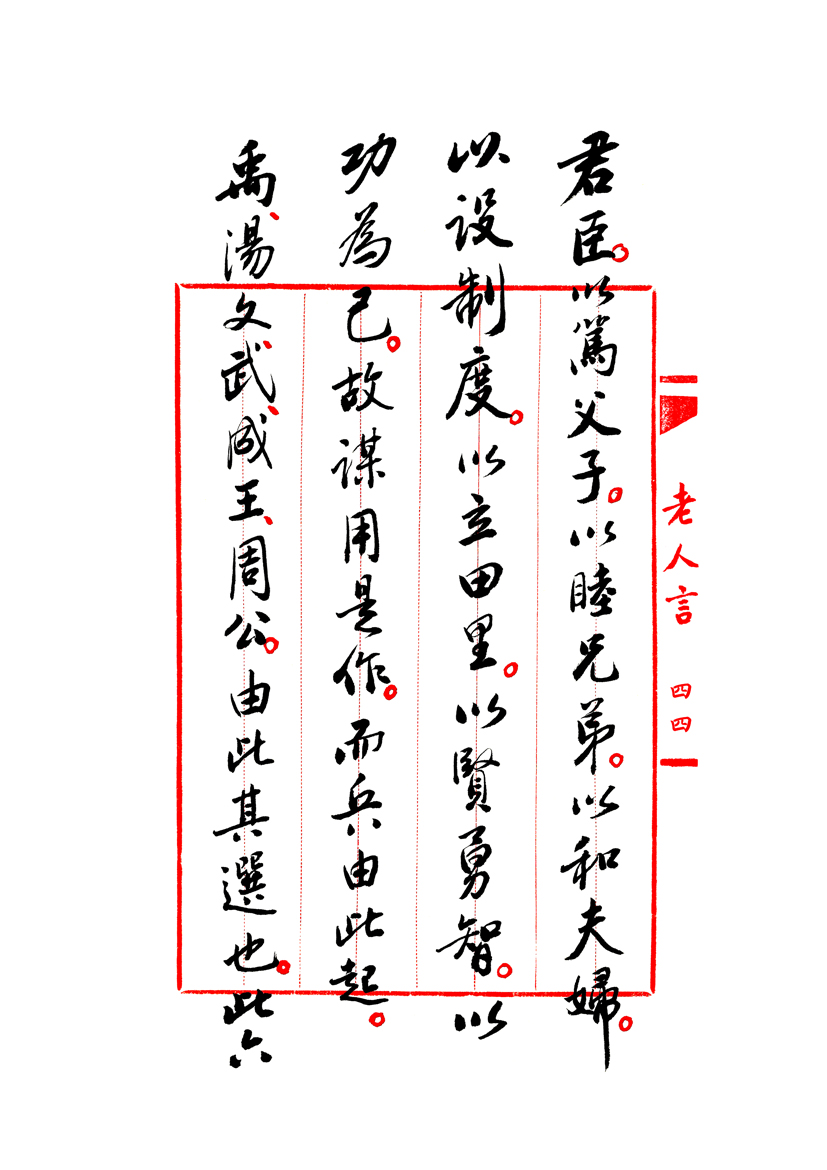 君臣。以篤父子。以睦兄弟。以和夫婦。
以设制度。以立田里。以賢勇智。以
功為己。故谋用是作。而兵由此起。
禹、湯、文、武、成王、周公。由此其選也。此六
老人言 四四